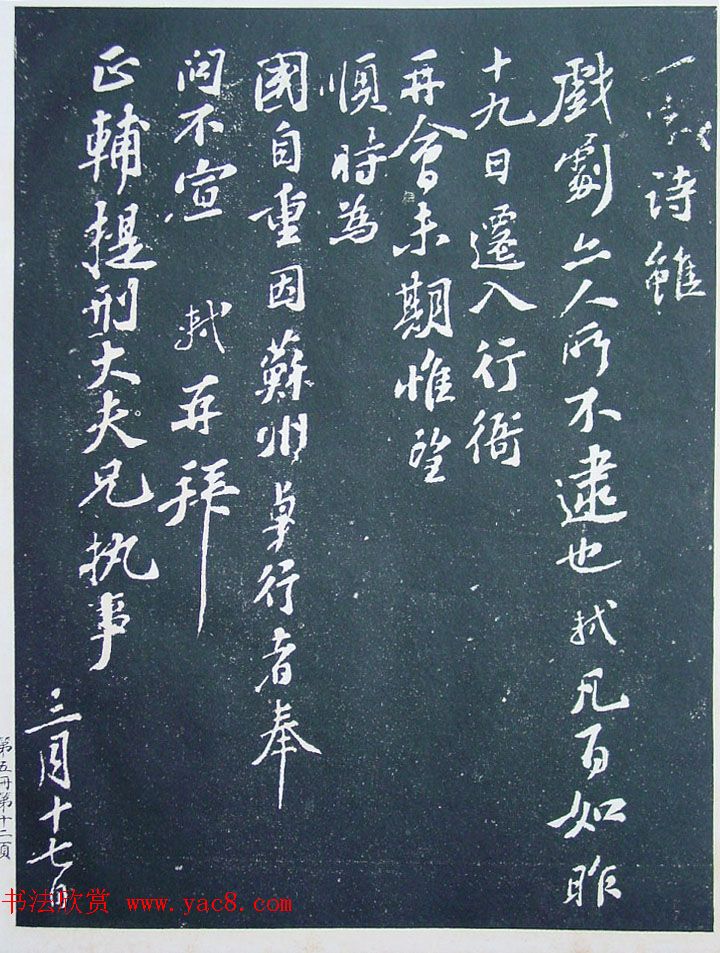 一戲诗雖
戲劇亦人所不逮也軾凡百如昨
十九日遷入行衙
再會未期惟望
順時為
國自重因蘇州卓行者奉
问不宣 軾再拜
正輔提刑大夫兄执事
三月十七日
第五冊第十二頁
书法欣赏 www.yac8.com